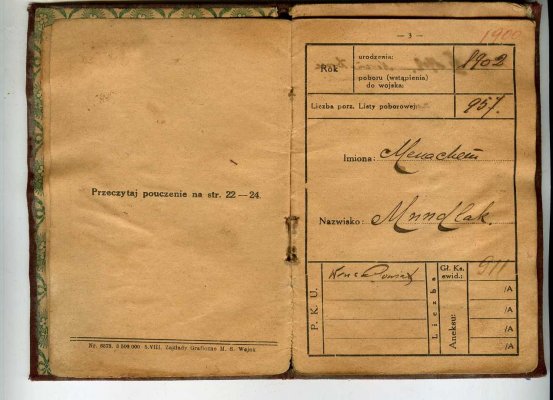 Przeczytaj pouczenie na str. 22—24.
Nr. 6575. 5 500 000 S.VIII. Zakłady Graficzne M. S. Wojsk
— 3 —
1900
Rok
urodzenia:
1902
poboru (wstąpienia)
do wojska:
Liczba porz. Listy poborowej
957.
Imiona: Menachem
Nazwisko: Mundlak.
P. K. U.
Liczba
Gł. Ks.
ewid.:
911
Aneksu:
/A
/A
/A